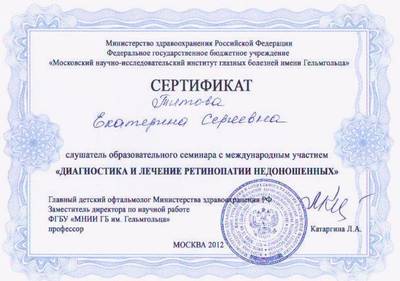 Министерство здравоохранения Российской Федерации
Федеральное государственное бюджетное учреждение
«Московский научно-исследовательский институт глазных болезней имени Гельмгольца»
СЕРТИФИКАТ
Титова
Екатерина Сергеевна
слушатель образовательного семинара с международным участием
«ДИАГНОСТИКА И ЛЕЧЕНИЕ РЕТИНОПАТИИ НЕДОНОШЕННЫХ»
Главный детский офтальмолог Министерства здравоохранения РФ
Заместитель директора по научной работе
ФГБУ «МНИИ ГБ им. Гельмгольца»
профессор
Катаргина Л.А.
МОСКВА 2012